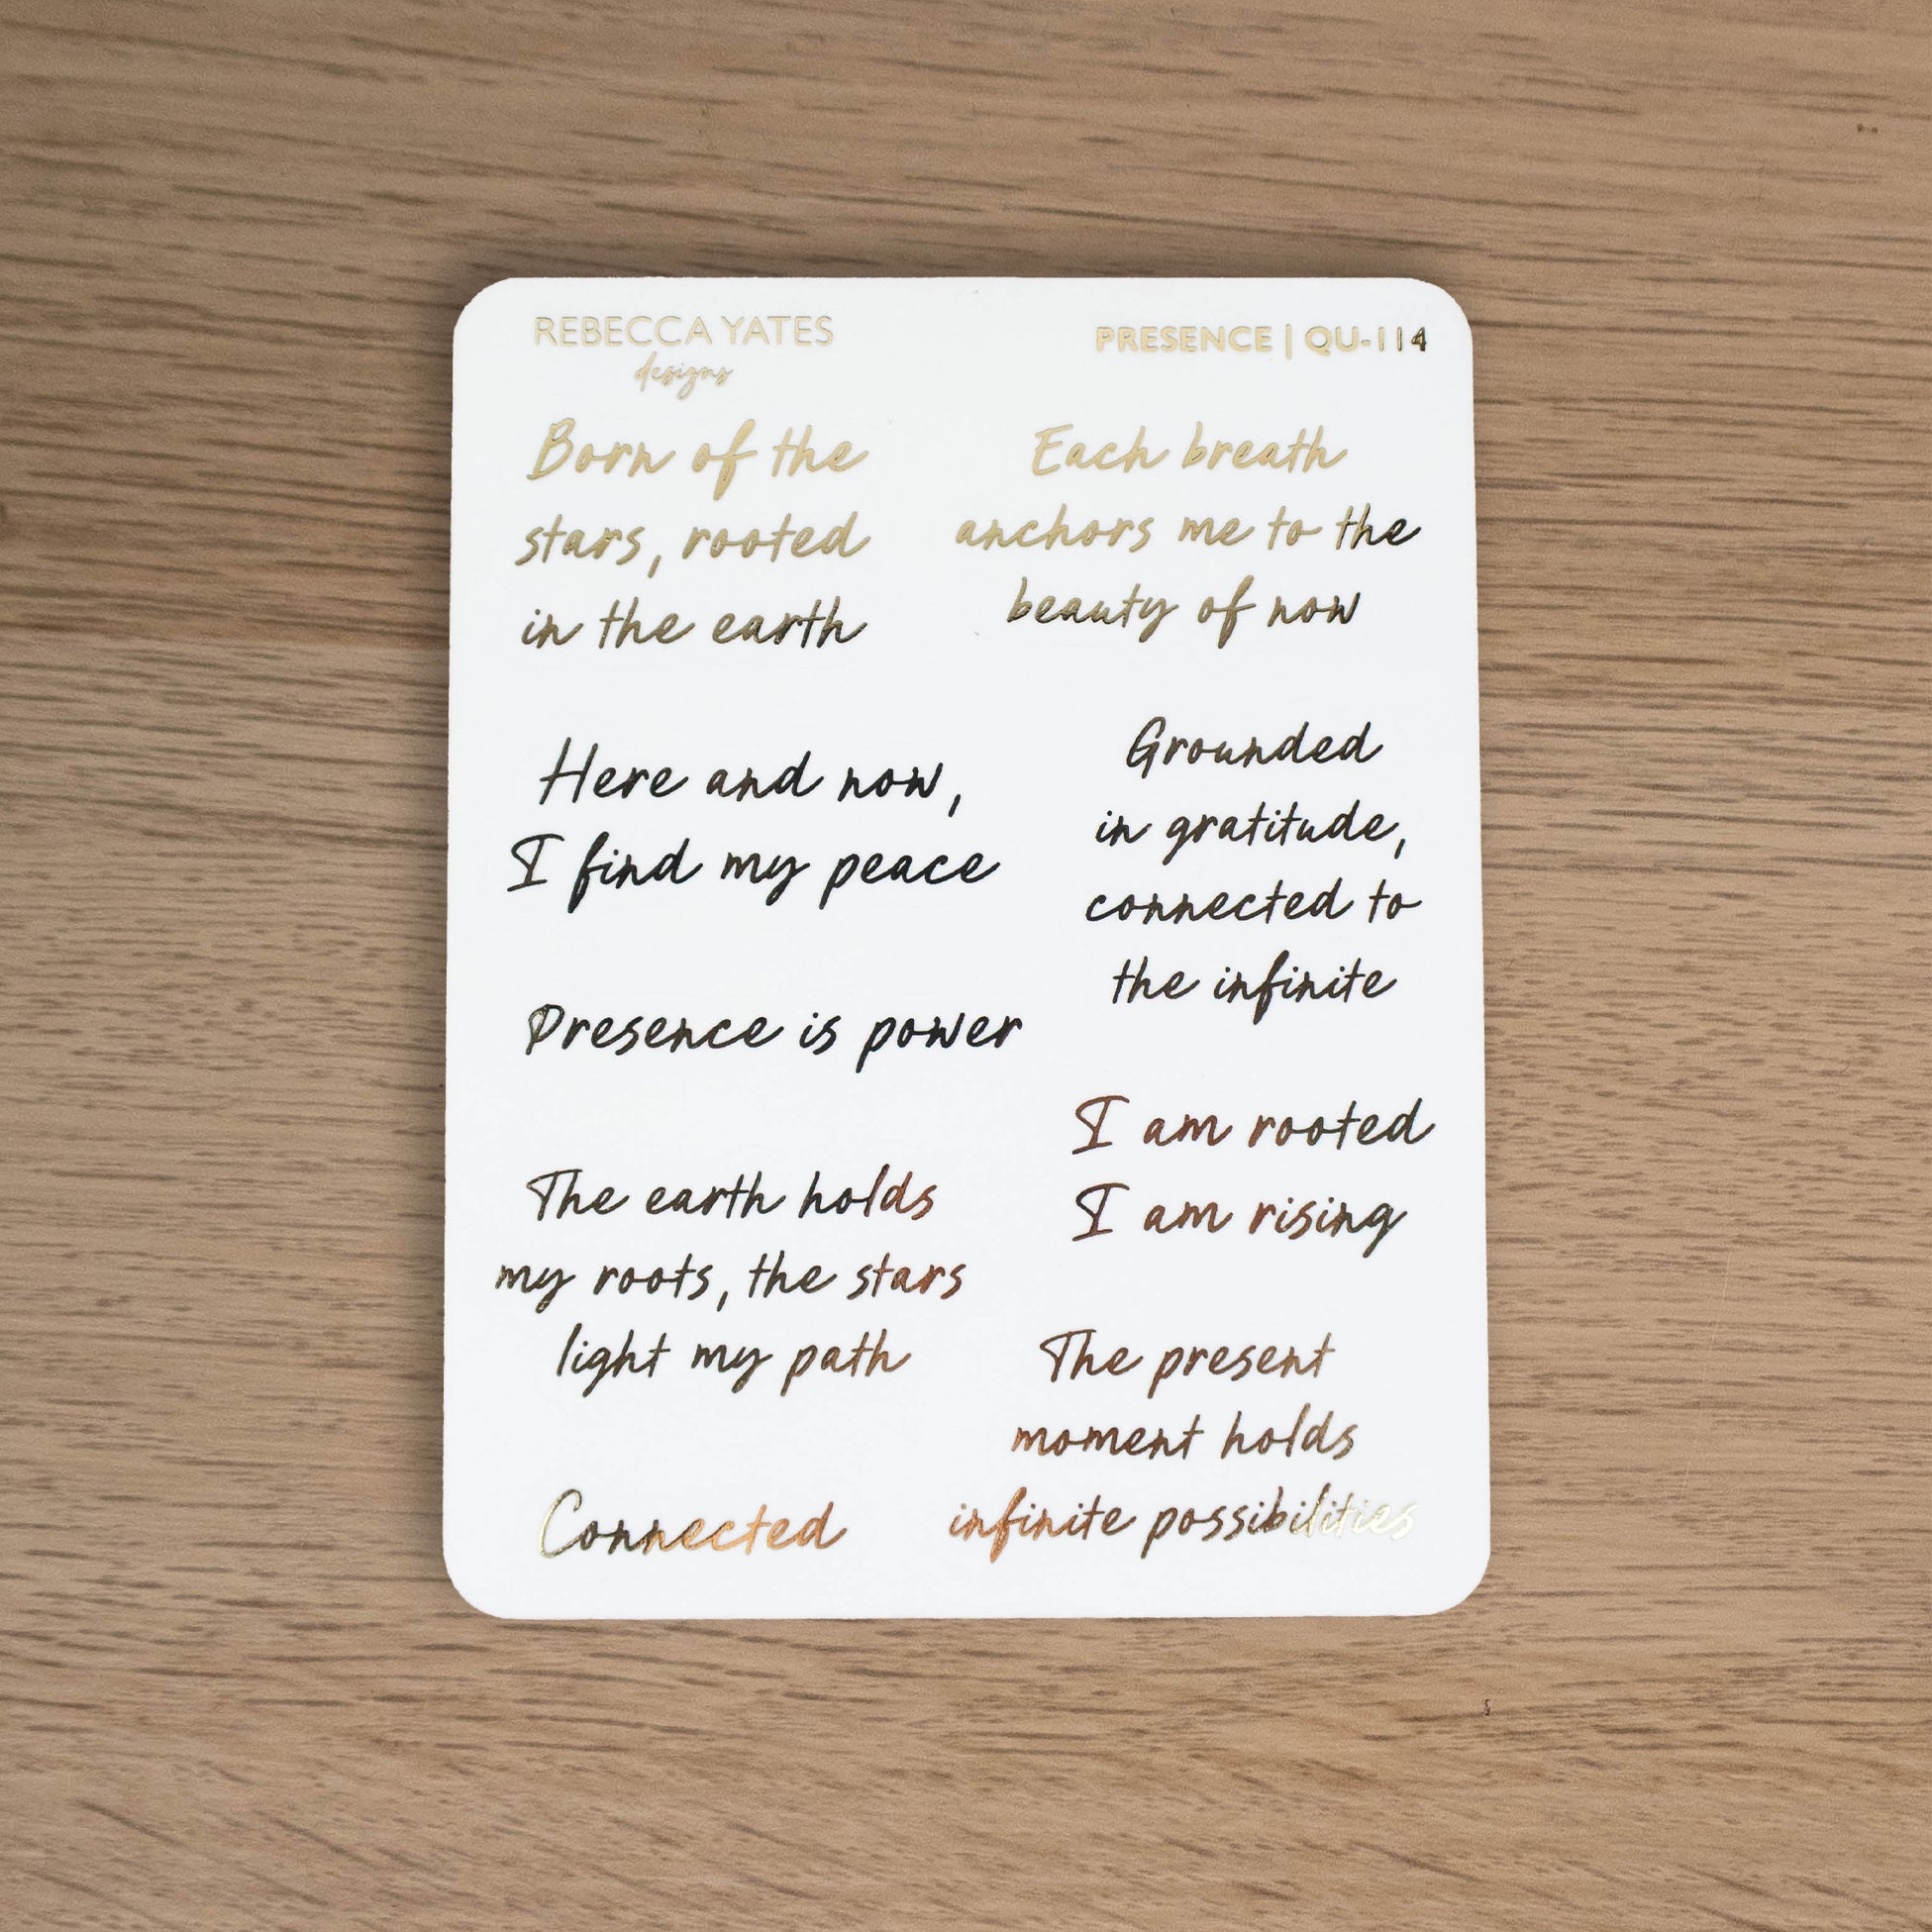 REBECCA YATES
designs
PRESENCE | QU-114
Born of the
stars, rooted
in the earth
Each breath
anchors me to the
beauty of now
Here and now,
I find my peace
Grounded
in gratitude,
connected to
the infinite
Presence is power
I am rooted
I am rising
The earth holds
my roots, the stars
light my path
The present
moment holds
infinite possibilities
Connected